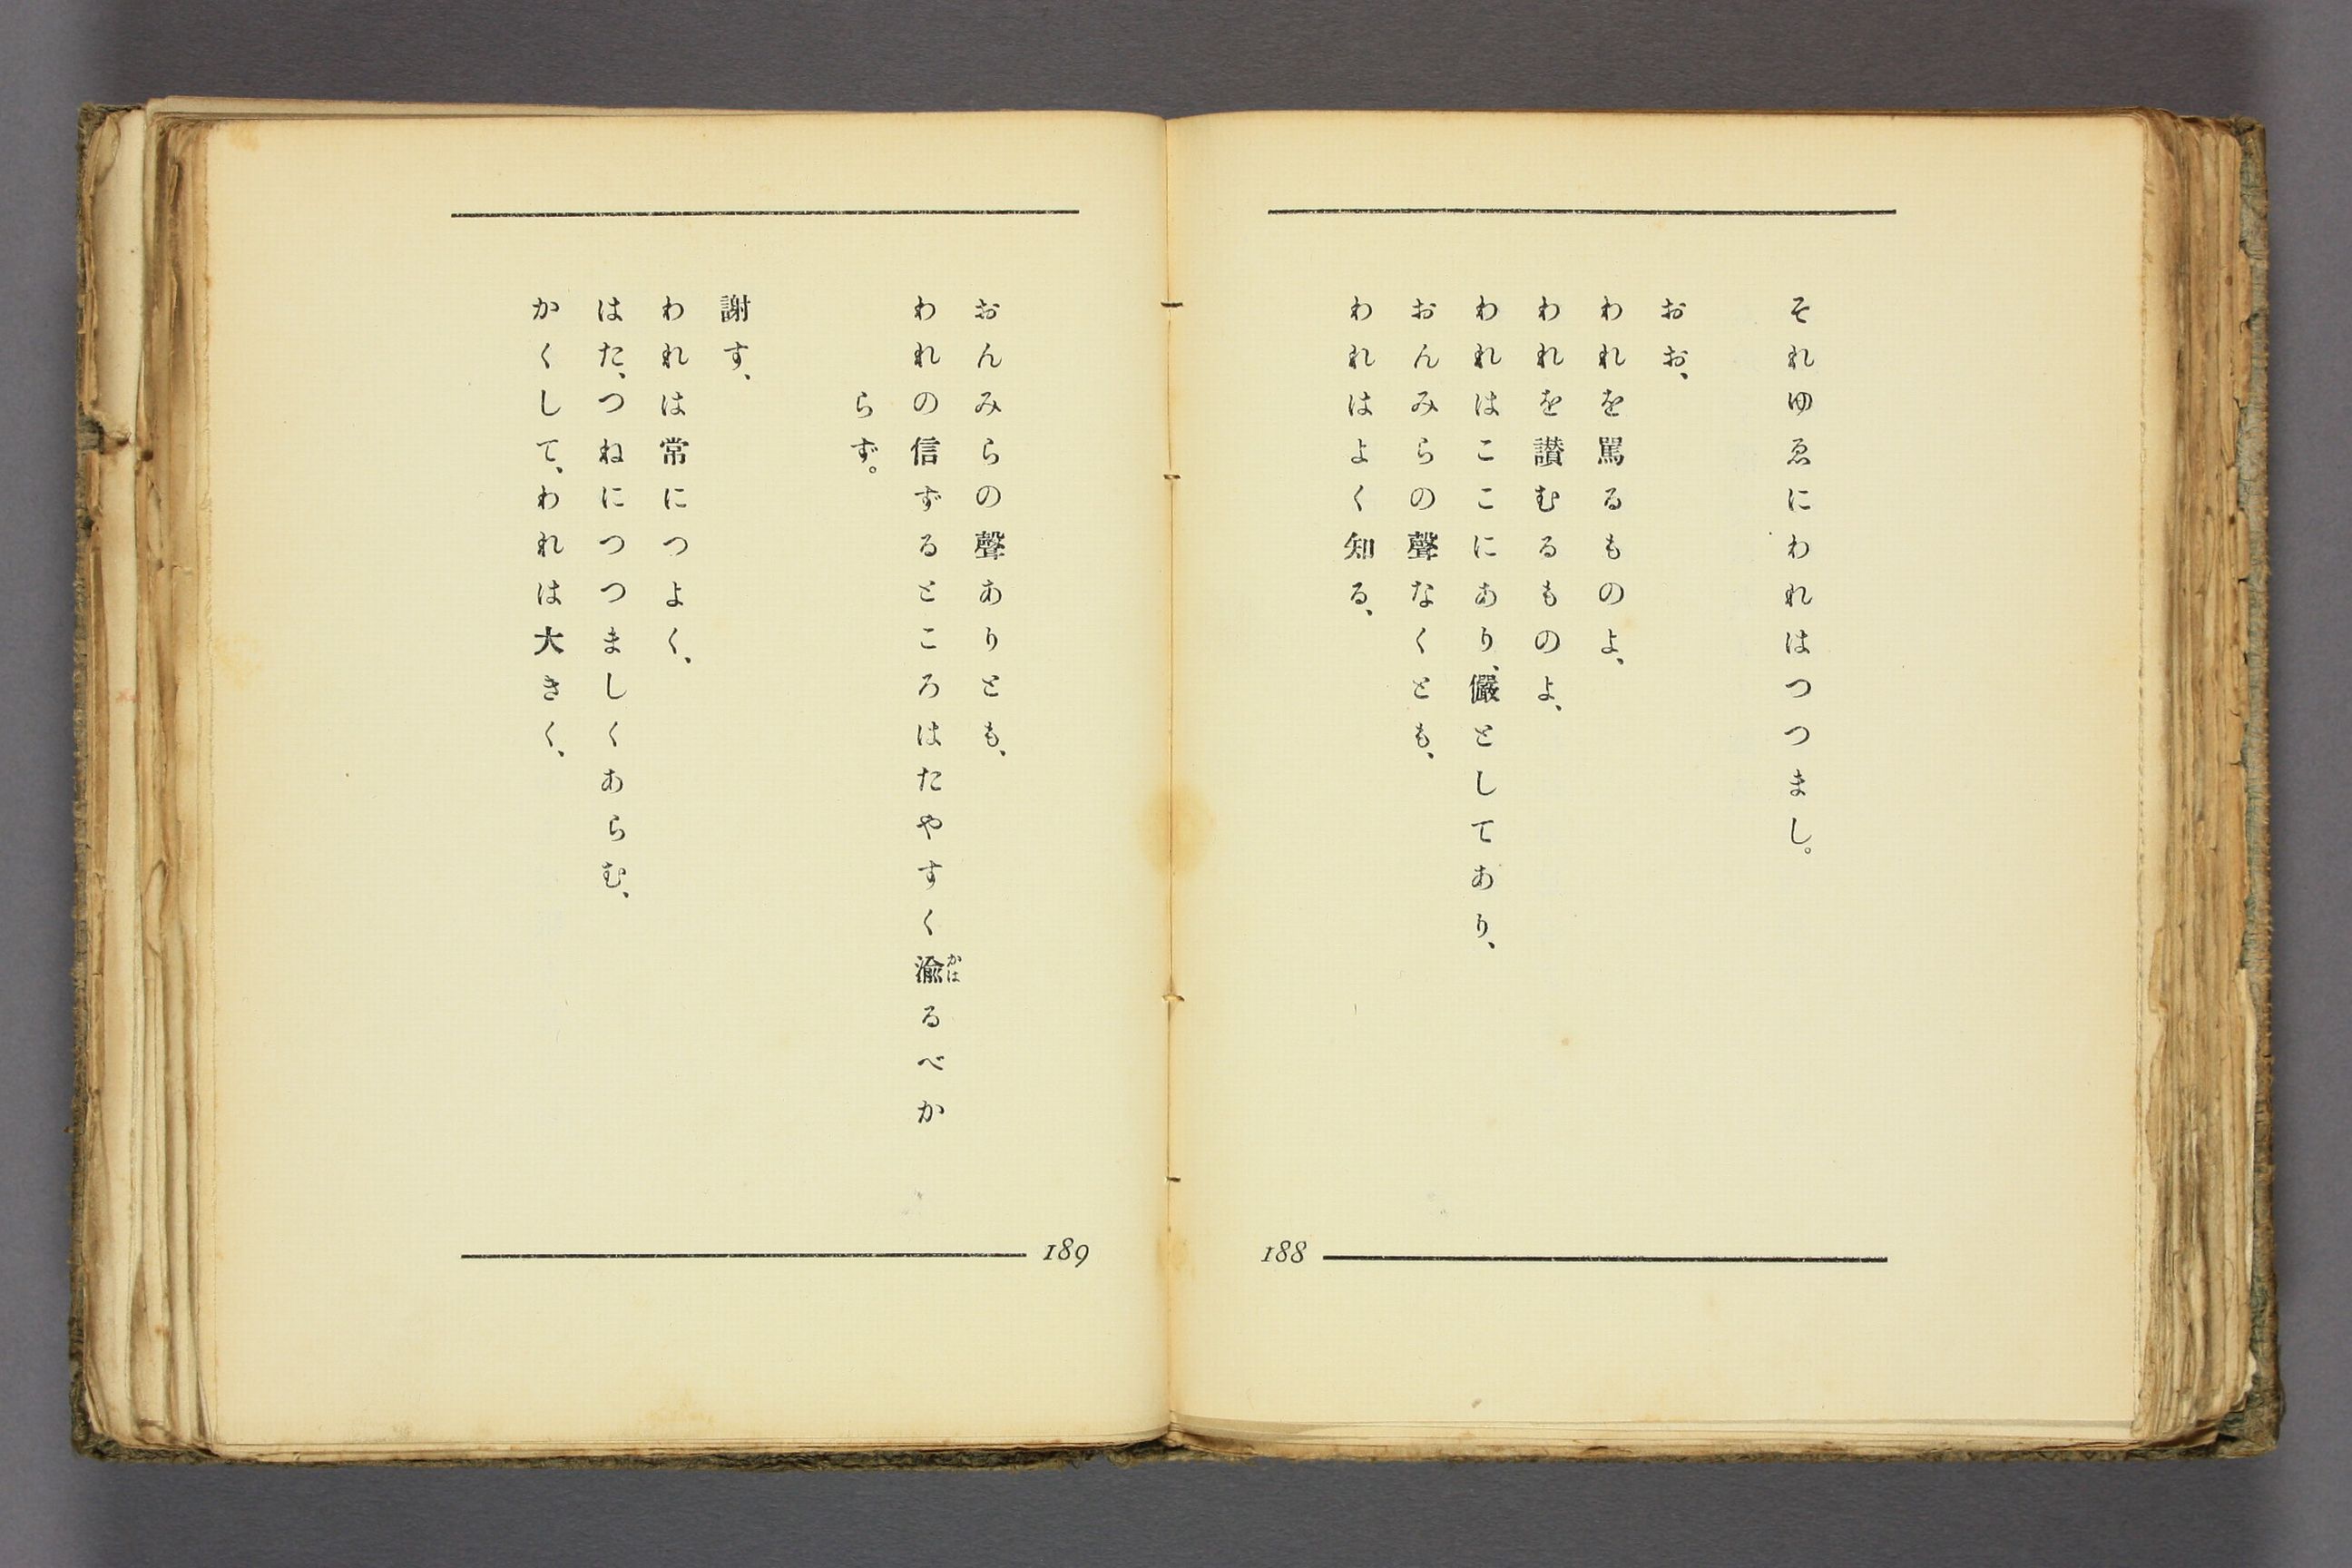 それゆゑにわれはつつまし。
おお、
われを罵るものよ、
われを讃むるものよ、
われはここにあり、儼としてあり、
おんみらの聲なくとも、
われはよく知る、
188
おんみらの聲ありとも、
われの信ずるところはたやすく渝るべか
かは
らず。
謝す、
われは常につよく、
はた、つねにつつましくあらむ、
かくして、われは大きく、
189